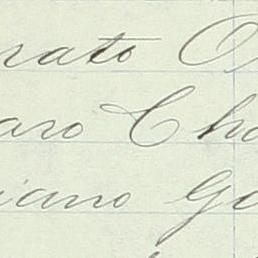 rato O
aro Cha
iano Go